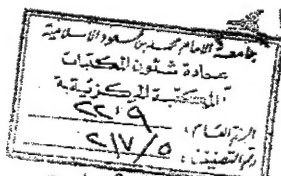 جامعة الامام محمد بن سعود الاسلامية
عمادة شئون المكتبات
المكتبة المركزية
الرقم العام: ٢٢٠٩
رقم التصنيف: ٢١٧/٥